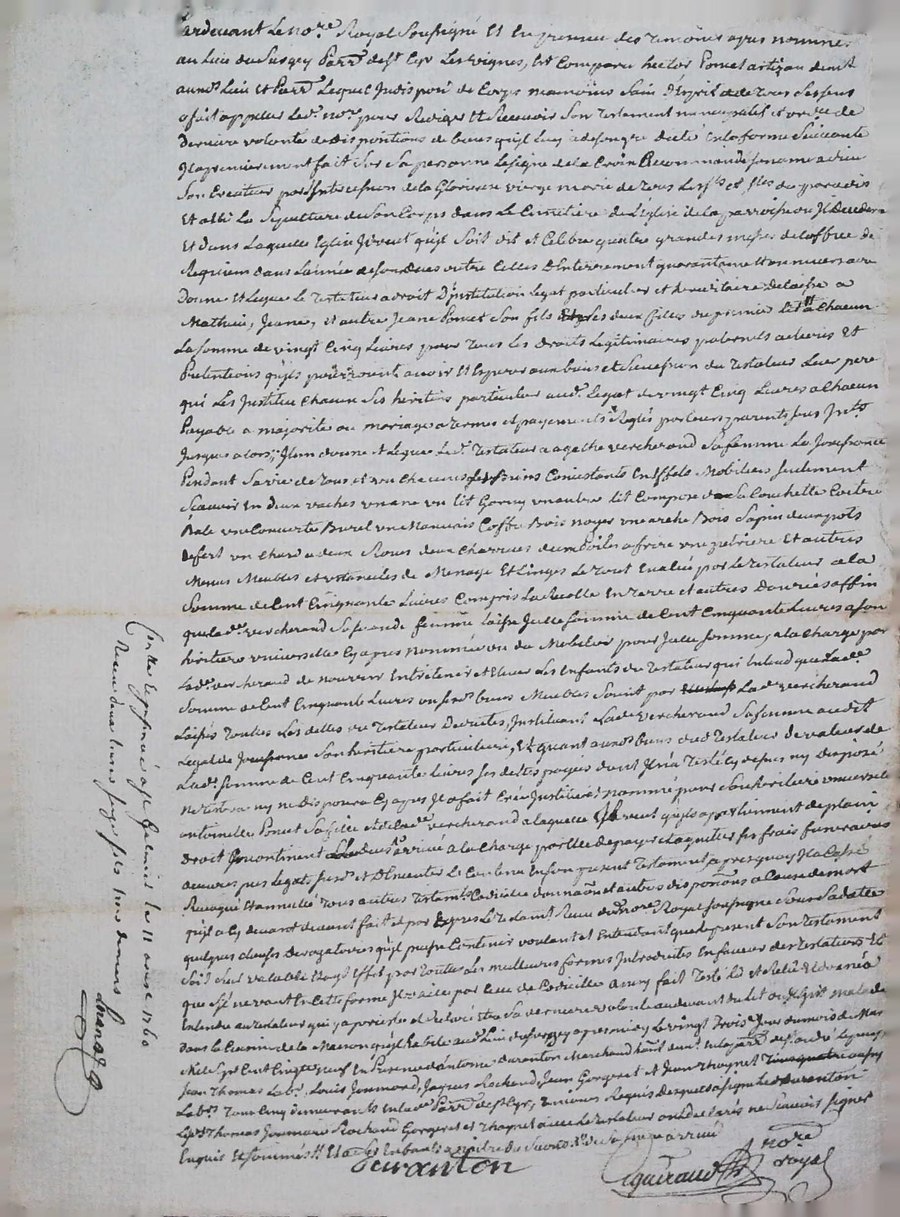 Pardevant Le no.re Royal Soussigné Et En presence des temoins apres nommés
au Lieu de Parr.e de S.t Cyr Les vignes, Est Comparu hector Poncet artizan dem.t
aud.t Lieu et Parr.e Lequel Indisposé de Corps neamoins Sain D'Esprit et de tous Ses sens
a fait appeller Led.t no.re pour Rediger et Recevoir Son Testament noncupatif et ord.ce de
Derniere volonté et dispositions de biens quil en la forme Suivante
Il a premierement fait Sur Sa personne Le Signe de la Croix Recommandé Son ame a dieu
Son Createur par l'Intercession de la Glorieuse vierge marie de tous Les S.ts et S.tes du paradis
Et La Sepulture de Son Corps dans Le Cimetiere de L'Eglise de la parroisse ou Il Decedera
Et dans Laquelle Eglise Il veut qu'il Soit dit et Celebré quatre grandes messes de L'office de
Requiem dans L'année de Son deces outre Celles D'Enterrement quarantaine
Donne Et Legue Le Testateur a droit D'institution Legat particulier et hereditaire delaisse a
Mathieu, Jeane, et autre Jeane Poncet Son fils Et Ses deux filles du premier Lit a Chacun
La Somme de vingt Cinq Livres pour tous Les Droits Legitimaires paternels
Pretentions qu'ils pourroient avoir Et Esperer aux biens et Succession du Testateur Leur pere
qui Les Institue Chacun Ses heritiers particuliers aud. Legat de vingt Cinq Livres a Chacun
Payable a majorité ou mariage a termes et payements Reglés par leurs parents Sans Int.ts
Jusques alors; Item donne et Legue Le d.t Testateur a agathe vercherand Sa femme La Jouissance
Pendant Sa vie de tous et un Chacuns Ses Biens Consistants En Effets Mobiliers Seulement
Scavoir En deux vaches un lit Garny un autre lit Composé de Sa Couchette
Bale une Couverte Burel un Mauvais Coffre Bois noyer une arche Bois Sapin deux pots
de fert un Char a deux Roues deux Charrues deux Poiles a frire une petriere Et autres
Menus Meubles et ustanciles de Menage Et Linges Le tout Evalué par Le testateur a la
Somme de Cent Cinquante Livres Compris La Recolte En terre et autres Denrées affin
que lad.e vercherand Sa Seconde femme laisse Ladite Somme de Cent Cinquante Livres a Son
heritiere universelle Cy apres Nommée ou du Mobilier pour Ladite Somme, a la Charge par
Lad.e vercherand de nourrir Entretenir et Elever Les Enfants du Testateur qui Entend que Lad.e
Somme de Cent Cinquante Livres ou Sesd.s biens Meubles Soient par Lad.e vercherand
Laissés Toutes Les dettes du Testateur Deduites, Instituant Lad.e vercherand Sa femme audit
Legat de Jouissance Son heritiere particuliere, Et quant aux d.s biens dud.t Testateur de valeur de
Lad.e Somme de Cent Cinquante Livres Ses dettes payées dont Il n'a Testé Cy dessus ny Disposé
ne testera ny ne disposera Cy apres Il a fait Créé Institué et nommé pour Son heritiere universelle
antoinette Poncet Sa fille et de Lad.e vercherand a laquelle Il veut qu'ils apartiennent de plain
Droit Incontinent Son deces arrivé a la Charge par Elle de payer et aquitter Ses frais funeraires
œuvres pies Legats Susd.s Et D'Executer Le Contenu En Son present Testament, apres quoy Il a Cassé
Revoqué Et annullé tous autres Testaments Codicilles donnaôns et autres dispoôns a Cause de mort
qu'il a Cy devant devant fait et par Expres Le Recu du no.re Royal Soussigné Sous Sa datte
quelques clauses Derogatoires qu'il puisse Contenir voulant et Entendant que le present Son testament
Soit Seul valable Et ayt Effet par toutes Les meilleures formes Introduites En faveur des testateurs Et
que S'il ne vaut En Cette forme Il vaille par Celle de Codicille ainsy fait Testé Lû et Relû Et Donné a
Entendre au testateur qui y a persisté et declaré Etre Sa derniere volonté au devant du lit ou Il gist malade
dans la Cuisine de la Maison qu'il habite aud.t Lieu apres midy Le vingt trois.e Jour du mois de Mars
Mil Sept Cent Cinqte neuf En Presence d'antoine Duranton Marchand hab.t
Jean Thomas Lab.r Louis Joumard, Jaques Rochand, Jean Gorgeret et Jean Thaynet
Lab.rs Tous Cinq demeurants En lad.e Parr.e de S.t Cyr, temoins Requis Desquels a Signé Led.t Duranton
Lesd.ts Thomas Joumard Rochand Gorgeret et Thaynet avec Le testateur ont declarés ne Scavoir Signer
Enquis Et Sommés
Duranton
Gueraud no.re royal
Con.lé Le present a S.t Galmier le 11 1760
Recu deux livres